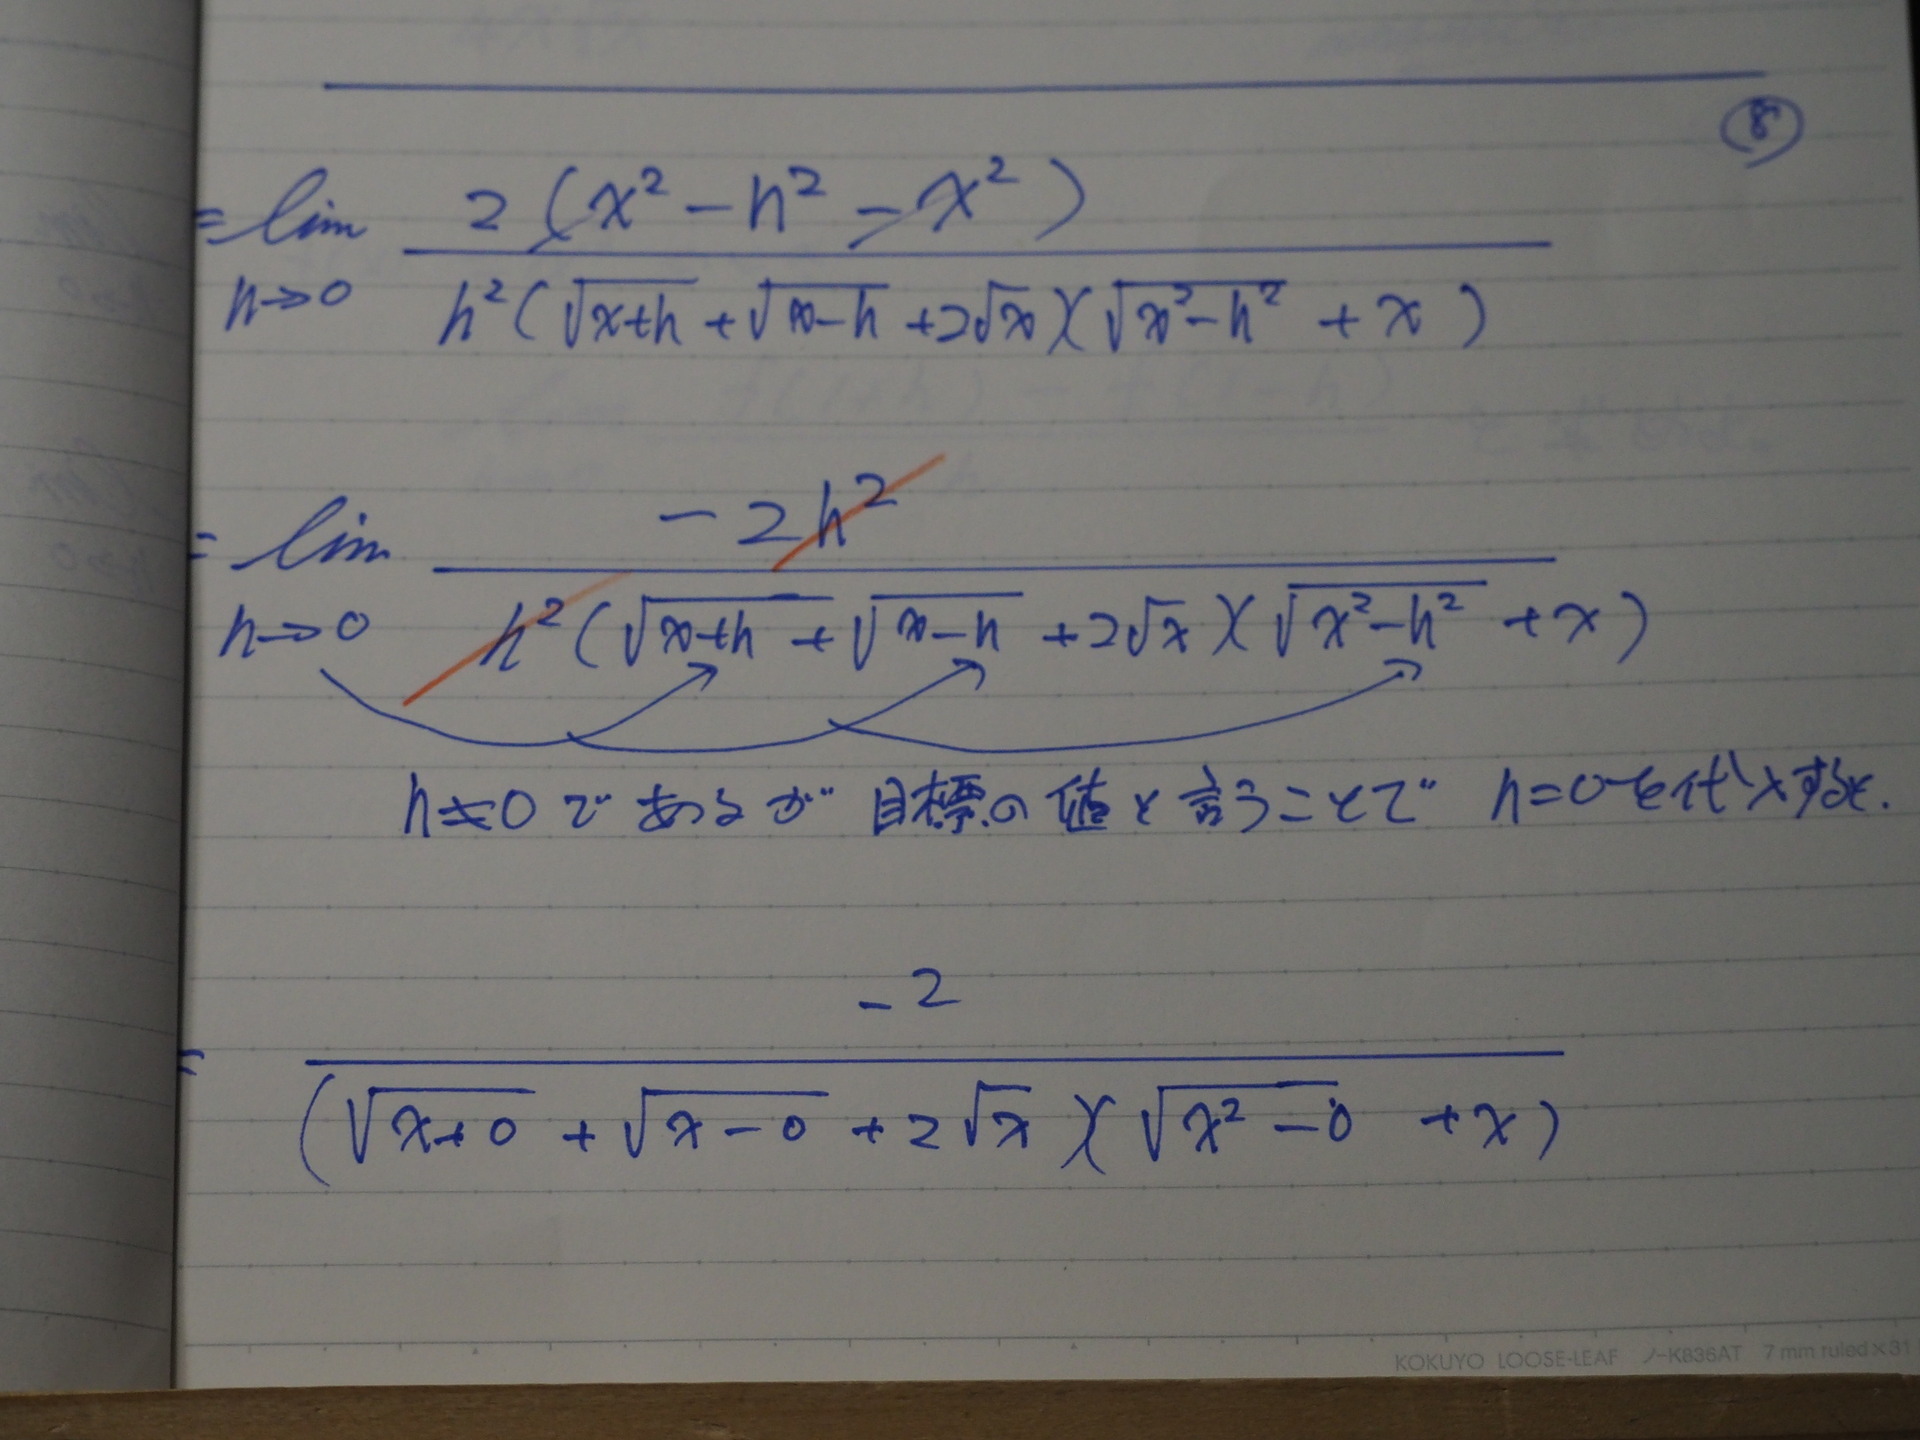 ⑧
= lim 2(x² - h² - x²)
h→0 h²(√x+h + √x-h + 2√x)(√x²-h² + x)
= lim -2h²
h→0 h²(√x+h + √x-h + 2√x)(√x²-h² + x)
h≠0であるが 目標の値と言うことで h=0を代入すると.
-2
=
(√x+0 + √x-0 + 2√x)(√x²-0 + x)
KOKUYO LOOSE-LEAF ノ-K836AT 7mm ruled×31